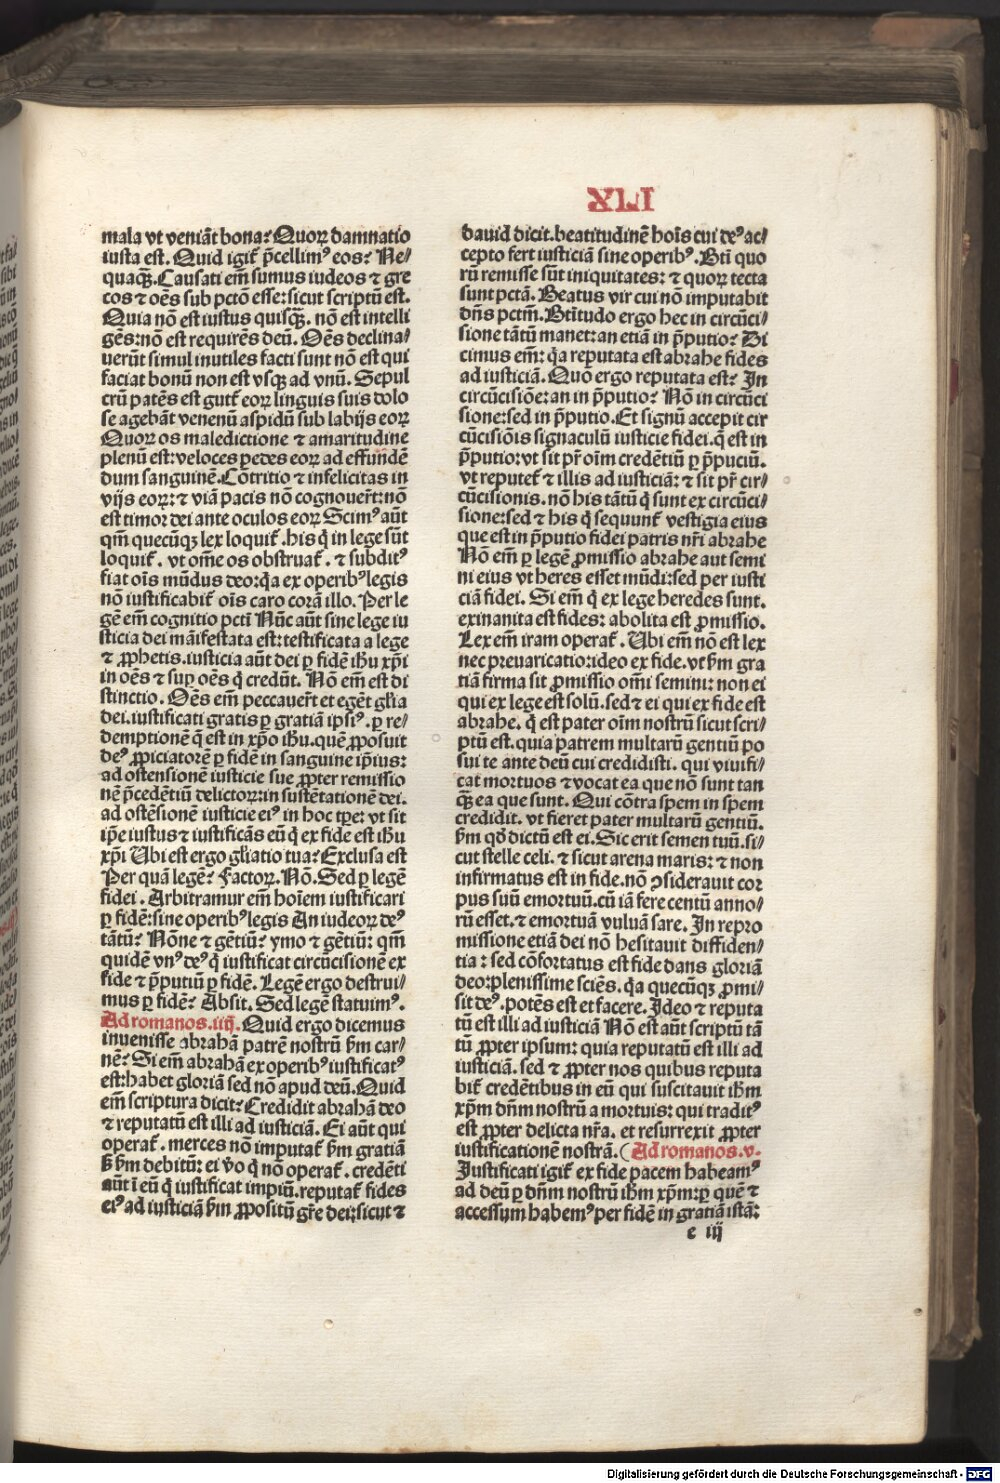 XLI
mala vt veniāt bona? Quoꝝ damnatio
iusta est. Quid igit᷑ p̄cellimꝰ eos? Ne⸗
quaꝙ̄. Causati em̄ sumus iudeos ⁊ gre
cos ⁊ oēs sub pctō esse: sicut scriptū est.
Quia nō est iustus quisꝙ̄. nō est intelli
gēs: nō est requirēs deū. Oēs declina⸗
uerūt simul inutiles facti sunt nō est qui
faciat bonū non est vsqꝫ ad vnū. Sepul
crū patēs est gutt᷑ eoꝝ linguis suis dolo
se agebāt venenū aspidū sub labijs eoꝝ
Quoꝝ os maledictione ⁊ amaritudine
plenū est: veloces pedes eoꝝ ad effundē
dum sanguinē. Cōtritio ⁊ infelicitas in
vijs eoꝝ: ⁊ viā pacis nō cognouer̄t: nō
est timor dei ante oculos eoꝝ Scimꝰ aūt
qm̄ quecūqꝫ lex loquit᷑. his q̄ in lege sūt
loquit᷑. vt om̄e os obstruat᷑. ⁊ subditꝰ
fiat oīs mūdus deo: q̄a ex operibꝰ legis
nō iustificabit᷑ oīs caro corā illo. Per le
gē em̄ cognitio pcti Nūc aūt sine lege iu
sticia dei māifestata est: testificata a lege
⁊ ꝓphetis. iusticia aūt dei ꝑ fidē ihū xp̄i
in oēs ⁊ suꝑ oēs q̄ credūt. Nō em̄ est di
stinctio. Oēs em̄ peccauer̄t et egēt gl̄ia
dei. iustificati gratis ꝑ gratiā ipsiꝰ. ꝑ re⸗
demptionē q̄ est in xp̄o ihū. quē ꝓposuit
deꝰ ꝓpiciatorē ꝑ fidē in sanguine ip̄ius:
ad ostensionē iusticie sue ꝓpter remissio
nē p̄cedētiū delictoꝝ: in sustētationē dei.
ad ostēsionē iusticie eiꝰ in hoc tp̄e: vt sit
ip̄e iustus ⁊ iustificās eū q̄ ex fide est ihū
xp̄i Vbi est ergo gl̄iatio tua? Exclusa est
Per quā legē? Factoꝝ. Nō. Sed ꝑ legē
fidei. Arbitramur em̄ hoīem iustificari
ꝑ fidē: sine operibꝰ legis An iudeoꝝ deꝰ
tātū? Nōne ⁊ gētiū? ymo ⁊ gētiū: qm̄
quidē vnꝰ deꝰ q̄ iustificat circūcisionē ex
fide ⁊ p̄putiū ꝑ fidē. Legē ergo destrui⸗
mus ꝑ fidē? Absit. Sed legē statuimꝰ.
Ad romanos. iiij. Quid ergo dicemus
inuenisse abrahā patrē nostrū ẜm car⸗
nē? Si em̄ abrahā ex operibꝰ iustificatꝰ
est: habet gloriā sed nō apud deū. Quid
em̄ scriptura dicit? Credidit abrahā deo
⁊ reputatū est illi ad iusticiā. Ei aūt qui
operat᷑. merces nō imputat᷑ ẜm gratiā
ẜ ẜm debitū: ei v̄o q̄ nō operat᷑. credēti
aūt ī eū q̄ iustificat impiū. reputat᷑ fides
eiꝰ ad iusticiā ẜm ꝓpositū gr̄e dei: sicut ⁊
dauid dicit. beatitudinē hoīs cui deꝰ ac⸗
cepto fert iusticiā sine operibꝰ. Bt̄i quo
rū remisse sūt iniquitates: ⁊ quoꝝ tecta
sunt pctā. Beatus vir cui nō imputabit
dn̄s pctm̄. Bt̄itudo ergo hec in circūci⸗
sione tātū manet: an etiā in p̄putio? Di
cimus em̄: q̄a reputata est abrahe fides
ad iusticiā. Quō ergo reputata est? In
circūcisiōe: an in p̄putio? Nō in circūci
sione: sed in p̄putio. Et signū accepit cir
cūcisiōis signaculū iusticie fidei. q̄ est in
p̄putio: vt sit pr̄ oīm credētiū ꝑ p̄puciū.
vt reputet᷑ ⁊ illis ad iusticiā: ⁊ sit pr̄ cir⸗
cūcisionis. nō his tātū q̄ sunt ex circūci⸗
sione: sed ⁊ his q̄ sequunt᷑ vestigia eius
que est in p̄putio fidei patris nr̄i abrahe
Nō em̄ ꝑ legē ꝓmissio abrahe aut semi
ni eius vt heres esset mūdi: sed per iusti
ciā fidei. Si em̄ q̄ ex lege heredes sunt.
exinanita est fides: abolita est ꝓmissio.
Lex em̄ iram operat᷑. Vbi em̄ nō est lex
nec preuaricatio: ideo ex fide. vt ẜm gra
tiā firma sit ꝓmissio om̄i semini: non ei
qui ex lege est solū. sed ⁊ ei qui ex fide est
abrahe. q̄ est pater oīm nostrū sicut scri⸗
ptū est. quia patrem multarū gentiū po
sui te ante deū cui credidisti. qui viuifi⸗
cat mortuos ⁊ vocat ea que nō sunt tan
ꝙ̄ ea que sunt. Qui cōtra spem in spem
credidit. vt fieret pater multarū gentiū.
ẜm qd̄ dictū est ei. Sic erit semen tuū. si⸗
cut stelle celi. ⁊ sicut arena maris: ⁊ non
infirmatus est in fide. nō ↄsiderauit cor
pus suū emortuū. cū iā fere centū anno⸗
rū esset. ⁊ emortuā vuluā sare. In repro
missione etiā dei nō hesitauit diffiden⸗
tia: sed cōfortatus est fide dans gloriā
deo: plenissime sciēs. q̄a quecūqꝫ ꝓmi⸗
sit deꝰ. potēs est et facere. Ideo ⁊ reputa
tū est illi ad iusticiā Nō est aūt scriptū tā
tū ꝓpter ipsum: quia reputatū est illi ad
iusticiā. sed ⁊ ꝓpter nos quibus reputa
bit᷑ credētibus in eū qui suscitauit ihm̄
xp̄m dn̄m nostrū a mortuis: qui traditꝰ
est ꝓpter delicta nr̄a. et resurrexit ꝓpter
iustificationē nostrā. (Ad romanos. v.
Iustificati igit᷑ ex fide pacem habeamꝰ
ad deū ꝑ dn̄m nostrū ihm̄ xp̄m: ꝑ quē ⁊
accessum habemꝰ per fidē in gratiā istā:
e iij
Digitalisierung gefördert durch die Deutsche Forschungsgemeinschaft - DFG